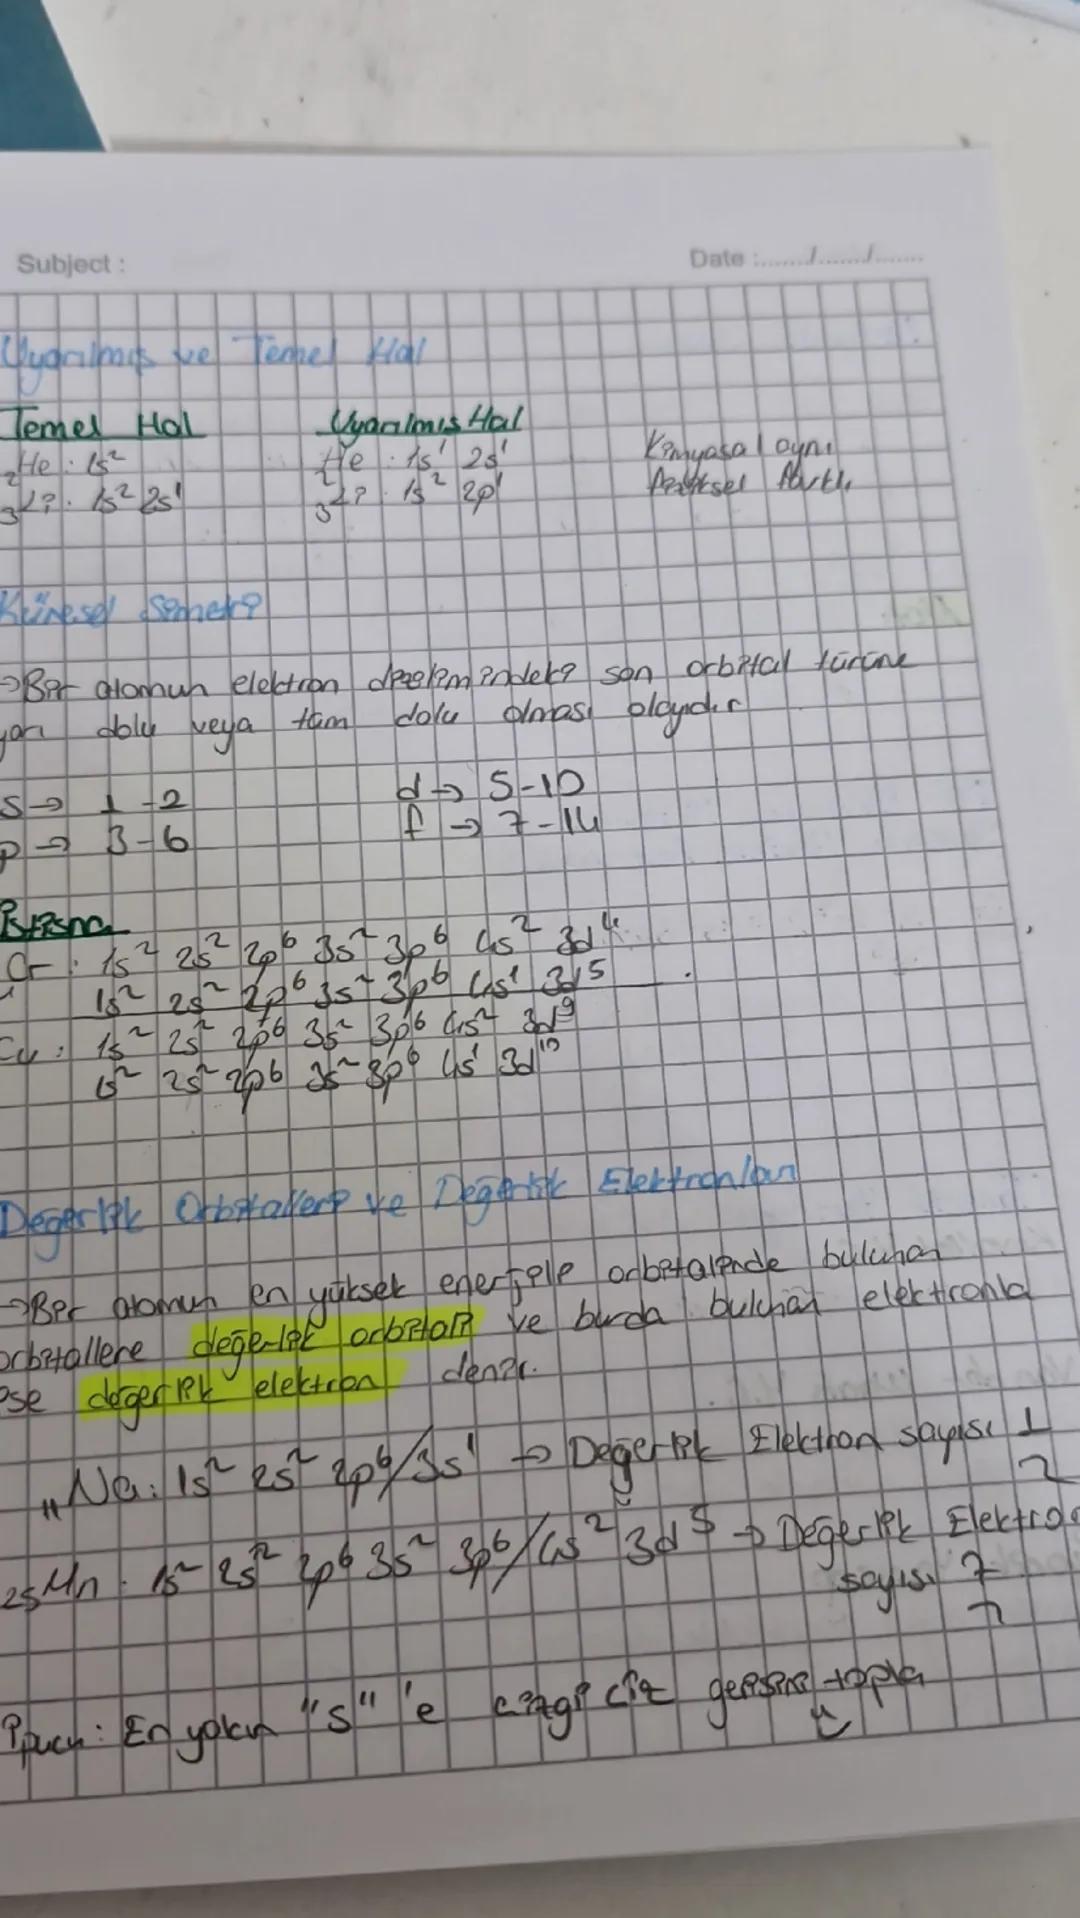 Subject :
Date :......../......./.......
Uyarılmış ve Temel Hal
Temel Hal
Uyarılmış Hal
₂He : 1s²
₂He : 1s¹ 2s¹
Kimyasal aynı
₃Li : 1s² 2s¹
₃Li : 1s² 2p¹
fiziksel farklı
Küresel Simetri
→Bir atomun elektron dizilimindeki son orbital türüne
yarı dolu veya tam dolu olması olayıdır
s → 1-2
d → 5-10
p → 3-6
f → 7-14
İstisna
Cr : 1s² 2s² 2p⁶ 3s² 3p⁶ 4s² 3d⁴
1s² 2s² 2p⁶ 3s² 3p⁶ 4s¹ 3d⁵
Cu : 1s² 2s² 2p⁶ 3s² 3p⁶ 4s² 3d⁹
1s² 2s² 2p⁶ 3s² 3p⁶ 4s¹ 3d¹⁰
Değerlik Orbitalleri ve Değerlik Elektronları
→Bir atomun en yüksek enerjili orbitalinde bulunan
orbitallere değerlik orbitali ve burda bulunan elektronla
ise değerlik elektron denir.
₁₁Na : 1s² 2s² 2p⁶/3s¹ → Değerlik Elektron sayısı 1
₂₅Mn : 1s² 2s² 2p⁶ 3s² 3p⁶/4s² 3d⁵ → Değerlik Elektro
sayısı 7
İpucu : En yakın "s" 'e çizgi çiz gerisini topla